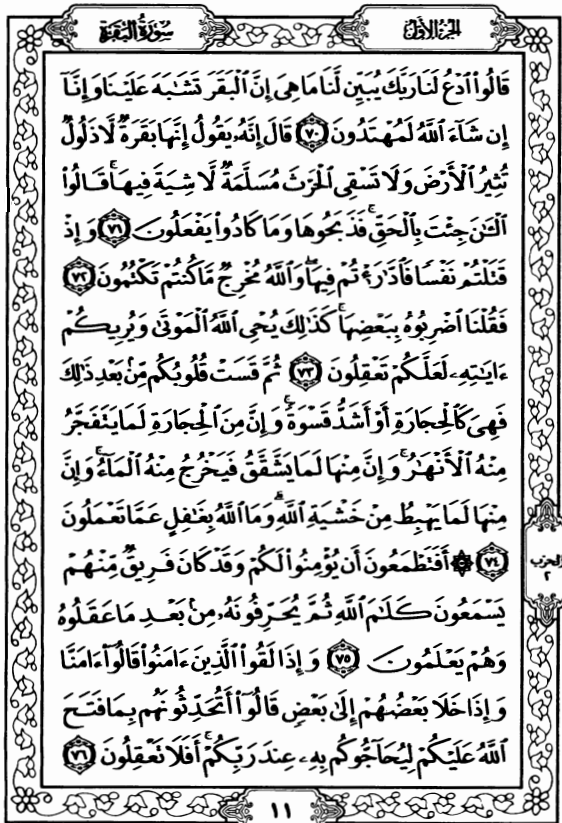 سُورَةُ البَقَرَةِ
الجزء الأوّل
قَالُوا۟ ٱدْعُ لَنَا رَبَّكَ يُبَيِّن لَّنَا مَا هِىَ إِنَّ ٱلْبَقَرَ تَشَٰبَهَ عَلَيْنَا وَإِنَّآ
إِن شَآءَ ٱللَّهُ لَمُهْتَدُونَ ٧٠ قَالَ إِنَّهُۥ يَقُولُ إِنَّهَا بَقَرَةٌ لَّا ذَلُولٌ
تُثِيرُ ٱلْأَرْضَ وَلَا تَسْقِى ٱلْحَرْثَ مُسَلَّمَةٌ لَّا شِيَةَ فِيهَا ۚ قَالُوا۟
ٱلْـَٰٔنَ جِئْتَ بِٱلْحَقِّ ۚ فَذَبَحُوهَا وَمَا كَادُوا۟ يَفْعَلُونَ ٧١ وَإِذْ
قَتَلْتُمْ نَفْسًا فَٱدَّٰرَْٰٔتُمْ فِيهَا ۖ وَٱللَّهُ مُخْرِجٌ مَّا كُنتُمْ تَكْتُمُونَ ٧٢
فَقُلْنَا ٱضْرِبُوهُ بِبَعْضِهَا ۚ كَذَٰلِكَ يُحْىِ ٱللَّهُ ٱلْمَوْتَىٰ وَيُرِيكُمْ
ءَايَٰتِهِۦ لَعَلَّكُمْ تَعْقِلُونَ ٧٣ ثُمَّ قَسَتْ قُلُوبُكُم مِّنۢ بَعْدِ ذَٰلِكَ
فَهِىَ كَٱلْحِجَارَةِ أَوْ أَشَدُّ قَسْوَةً ۚ وَإِنَّ مِنَ ٱلْحِجَارَةِ لَمَا يَتَفَجَّرُ
مِنْهُ ٱلْأَنْهَٰرُ ۚ وَإِنَّ مِنْهَا لَمَا يَشَّقَّقُ فَيَخْرُجُ مِنْهُ ٱلْمَآءُ ۚ وَإِنَّ
مِنْهَا لَمَا يَهْبِطُ مِنْ خَشْيَةِ ٱللَّهِ ۗ وَمَا ٱللَّهُ بِغَٰفِلٍ عَمَّا تَعْمَلُونَ
٧٤ ۞ أَفَتَطْمَعُونَ أَن يُؤْمِنُوا۟ لَكُمْ وَقَدْ كَانَ فَرِيقٌ مِّنْهُمْ
يَسْمَعُونَ كَلَٰمَ ٱللَّهِ ثُمَّ يُحَرِّفُونَهُۥ مِنۢ بَعْدِ مَا عَقَلُوهُ
وَهُمْ يَعْلَمُونَ ٧٥ وَإِذَا لَقُوا۟ ٱلَّذِينَ ءَامَنُوا۟ قَالُوٓا۟ ءَامَنَّا
وَإِذَا خَلَا بَعْضُهُمْ إِلَىٰ بَعْضٍ قَالُوٓا۟ أَتُحَدِّثُونَهُم بِمَا فَتَحَ
ٱللَّهُ عَلَيْكُمْ لِيُحَآجُّوكُم بِهِۦ عِندَ رَبِّكُمْ ۚ أَفَلَا تَعْقِلُونَ ٧٦
الحزب
٢
١١